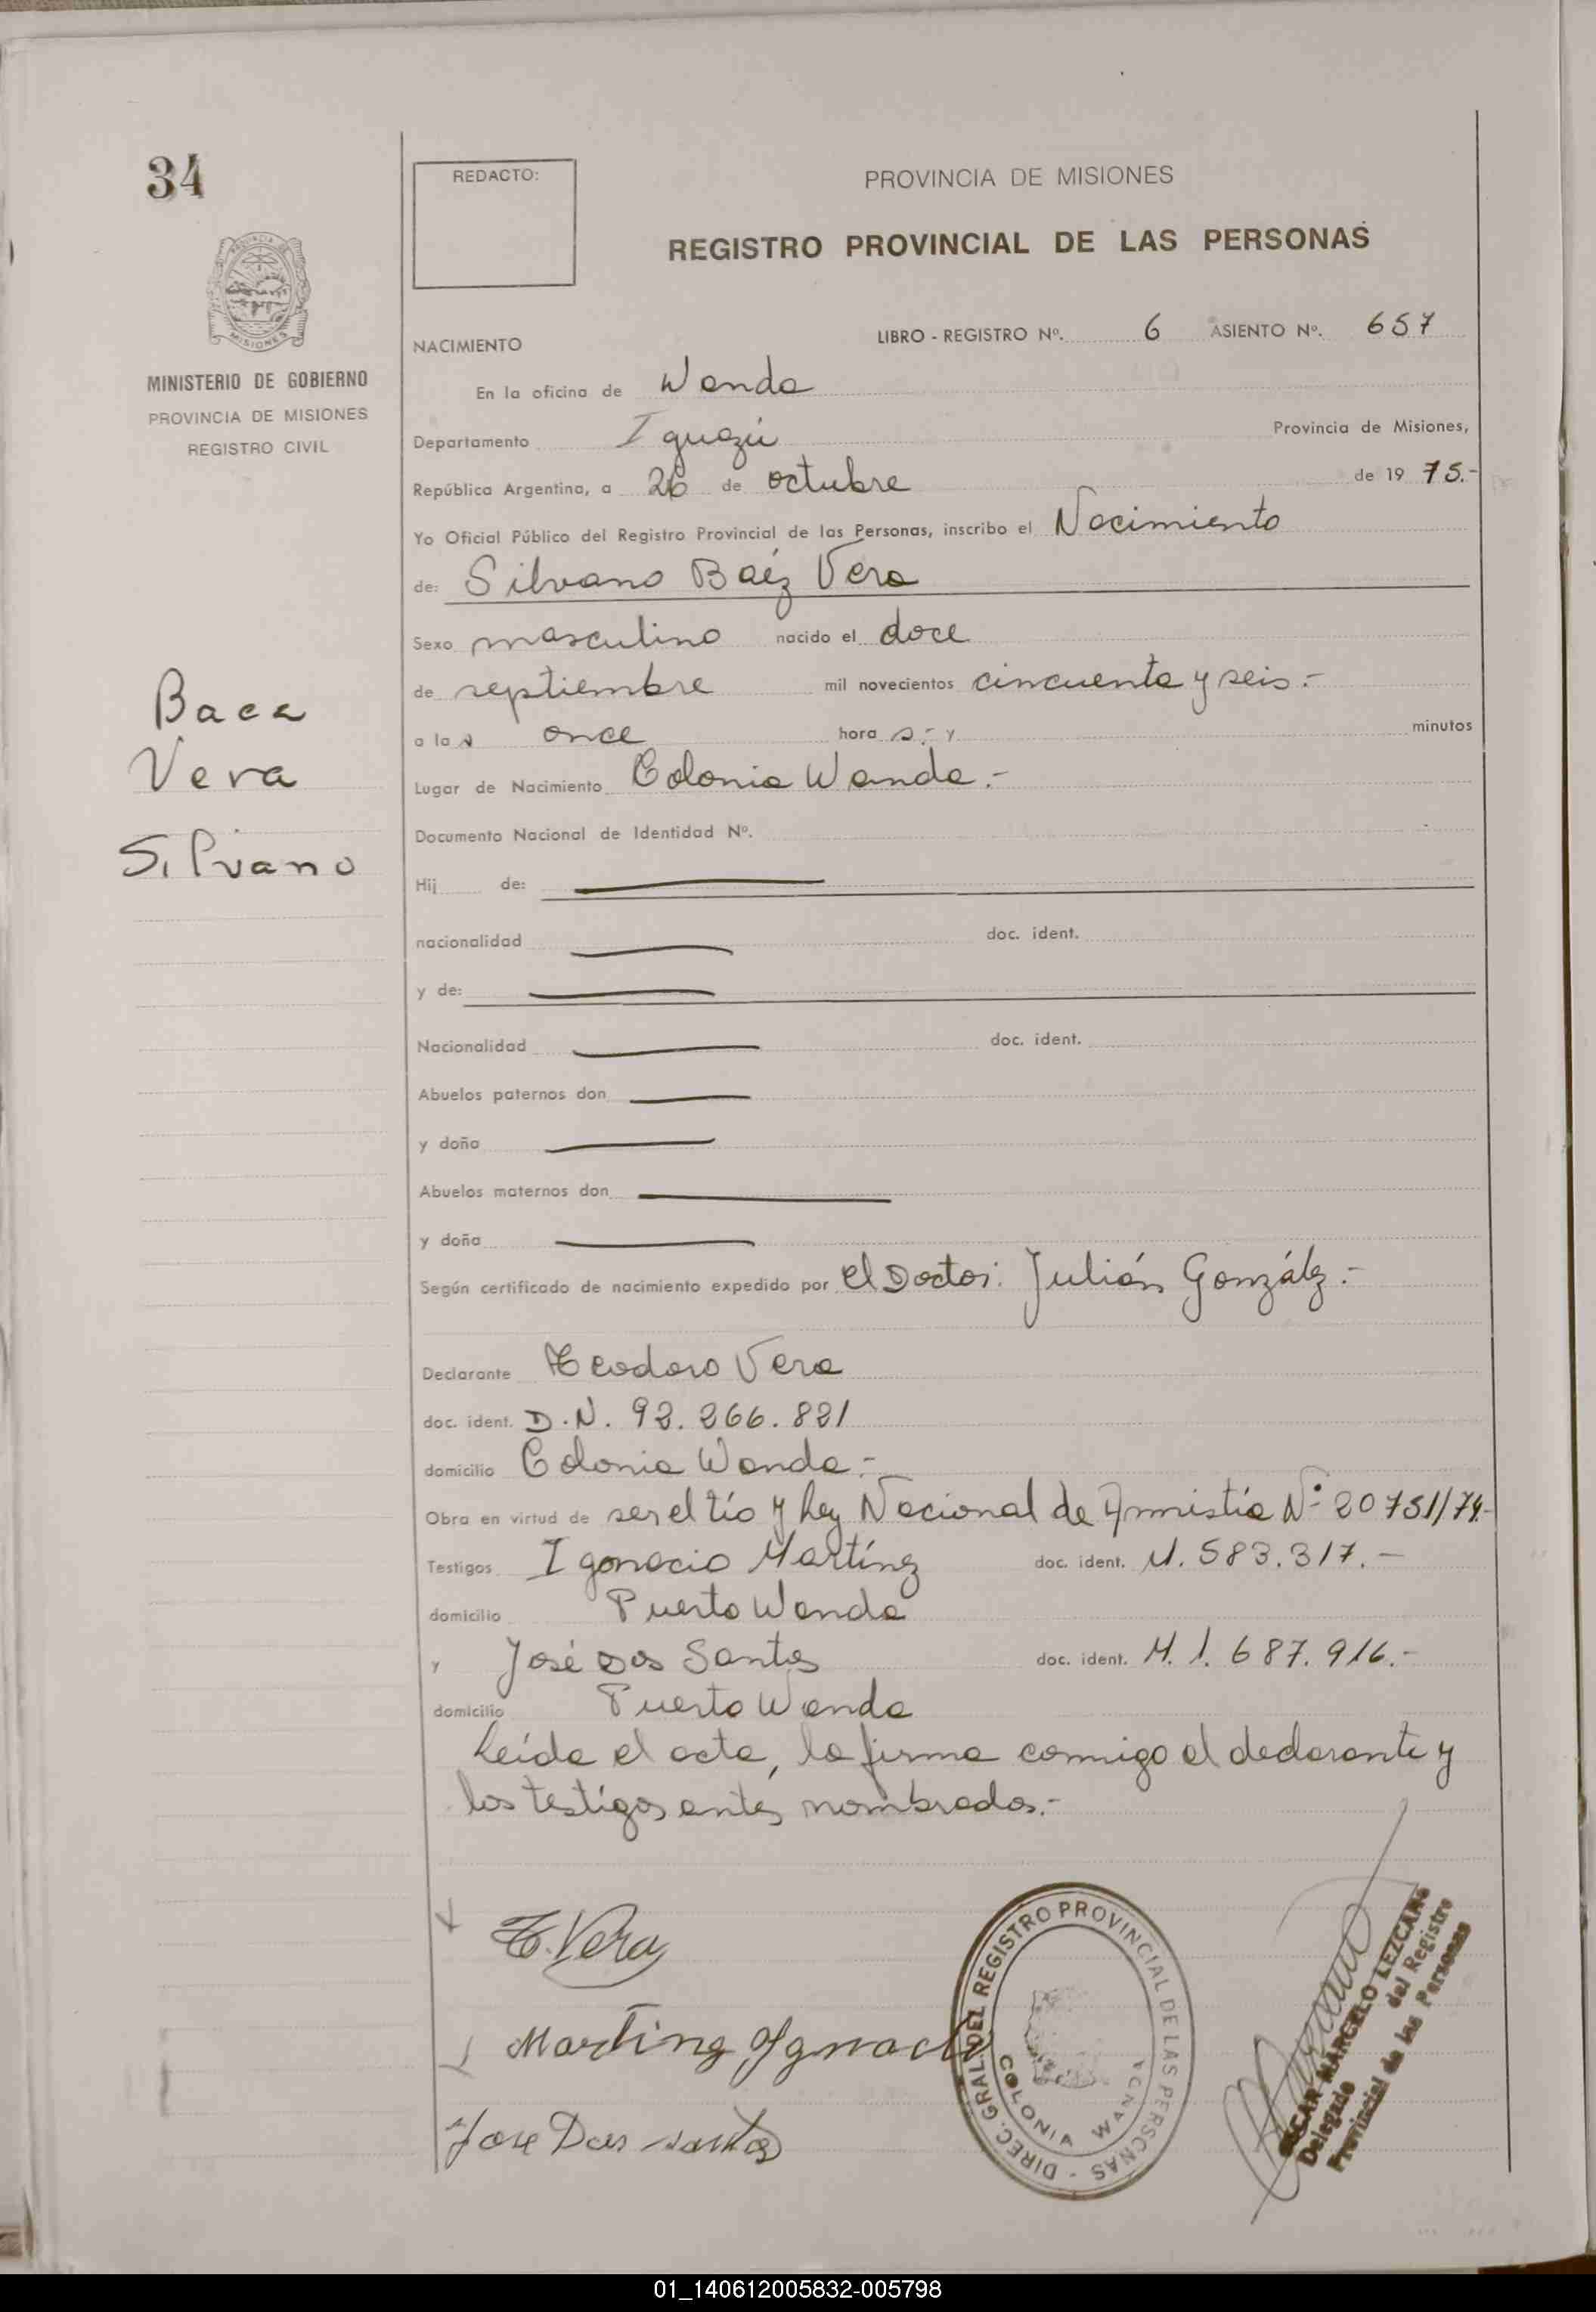 34
REDACTO:
PROVINCIA DE MISIONES
REGISTRO PROVINCIAL DE LAS PERSONAS
MISIONES
MINISTERIO DE GOBIERNO
PROVINCIA DE MISIONES
REGISTRO CIVIL
LIBRO - REGISTRO Nº. 6 ASIENTO Nº. 657
NACIMIENTO
En la oficina de Wanda
Departamento Iguazú Provincia de Misiones,
República Argentina, a 26 de octubre de 19 75.-
Yo Oficial Público del Registro Provincial de las Personas, inscribo el Nacimiento
de: Silvano Baéz Vera
Sexo masculino nacido el doce
de septiembre mil novecientos cincuenta y seis.-
a las once horas.- y minutos
Lugar de Nacimiento Colonia Wanda.-
Baez
Vera
Silvano
Documento Nacional de Identidad Nº.
Hij de:
nacionalidad doc. ident.
y de:
Nacionalidad doc. ident.
Abuelos paternos don
y doña
Abuelos maternos don
y doña
Según certificado de nacimiento expedido por el Doctor: Julián González.-
Declarante Teodoro Vera
doc. ident. D.N. 92.266.821
domicilio Colonia Wanda.-
Obra en virtud de ser el tío y Ley Nacional de Amnistía Nº 20751/74.-
Testigos Igonacio Martínez doc. ident. M. 583.317.-
domicilio Puerto Wanda
y José Dos Santos doc. ident. M. 1.687.916.-
domicilio Puerto Wanda
Leída el acta, la firma conmigo el declarante y
los testigos antes nombrados.-
T. Vera
Martinez Ignacio
Jose Dos santos
DIREC. GRAL. DEL REGISTRO PROVINCIAL DE LAS PERSONAS -
COLONIA WANDA
OSCAR MARCELO LEZCANO
Delegado del Registro
Provincial de las Personas
01_140612005832-005798